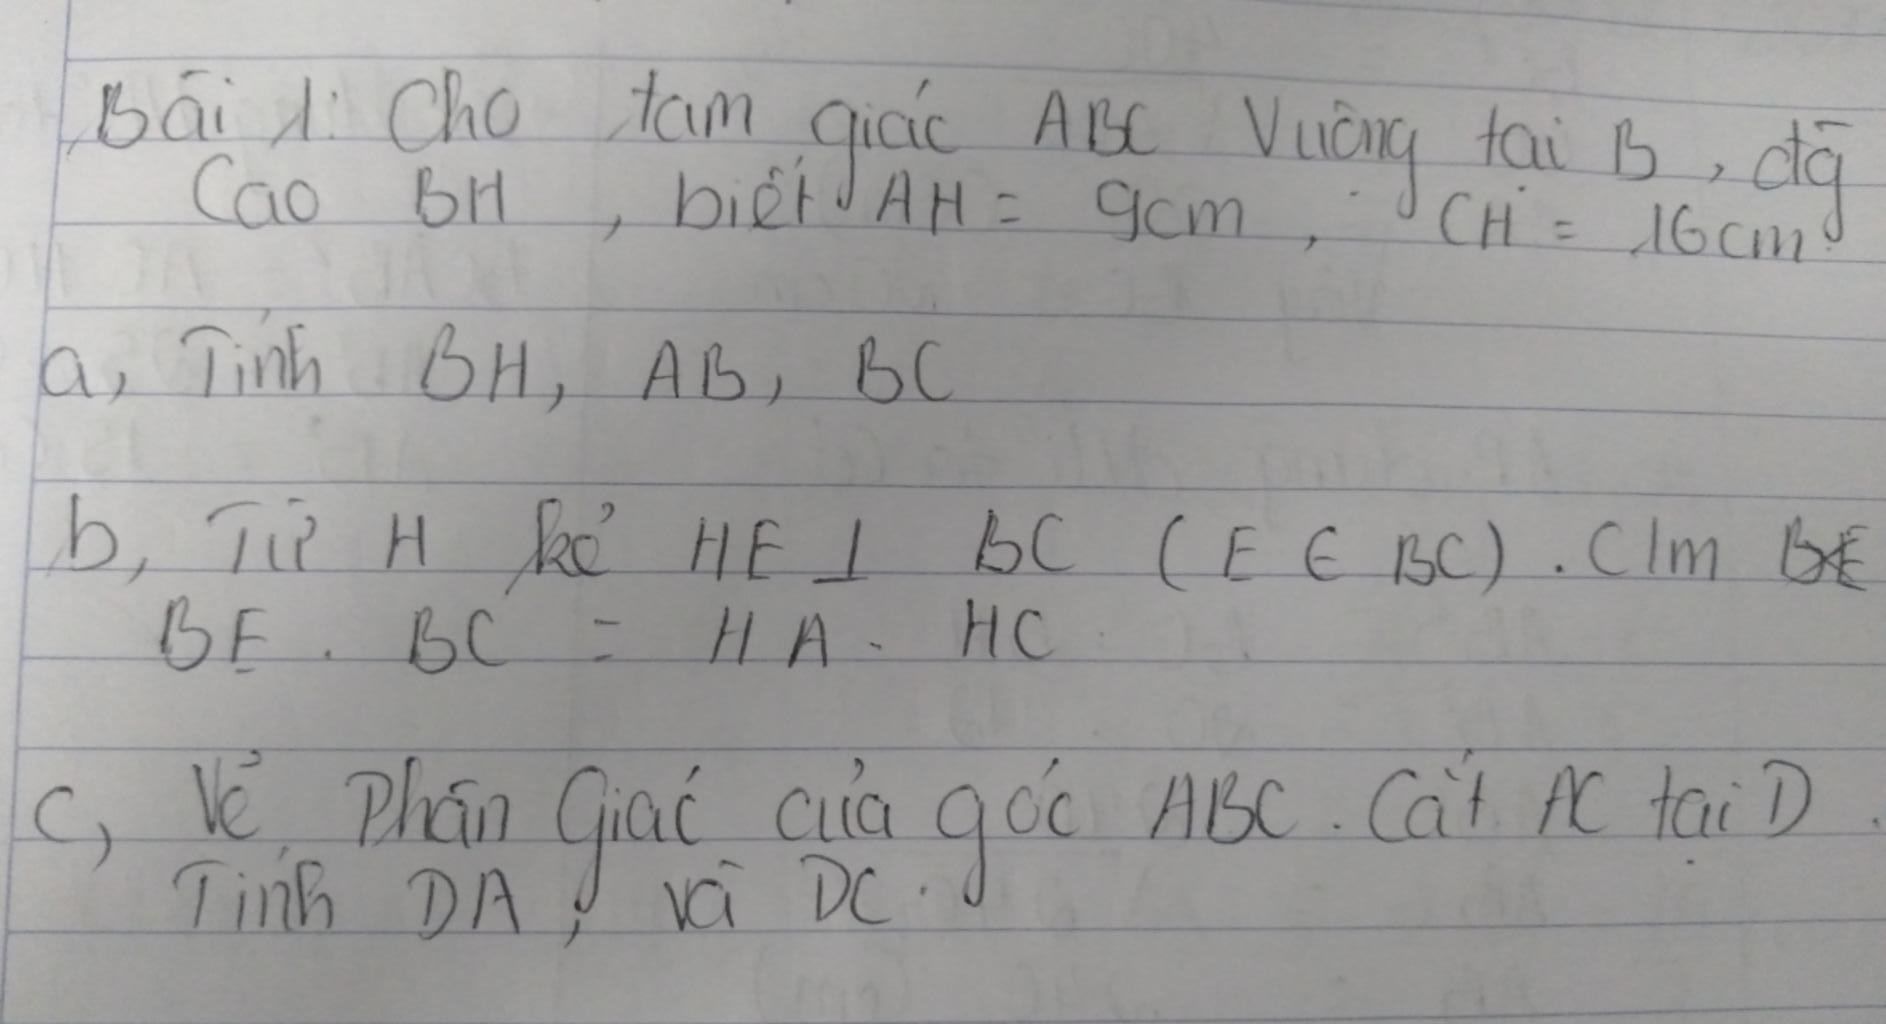 Bài 1: Cho tam giác ABC Vuông tại B, đg
Cao BH, biết AH = 9cm, CH = 16cm.
a, Tính BH, AB, BC
b, Từ H kẻ HE ⊥ BC (E ∈ BC). C/m
BE. BC = HA. HC
c, Vẽ Phân Giác của góc ABC. Cắt AC tại D.
Tính DA, và DC.